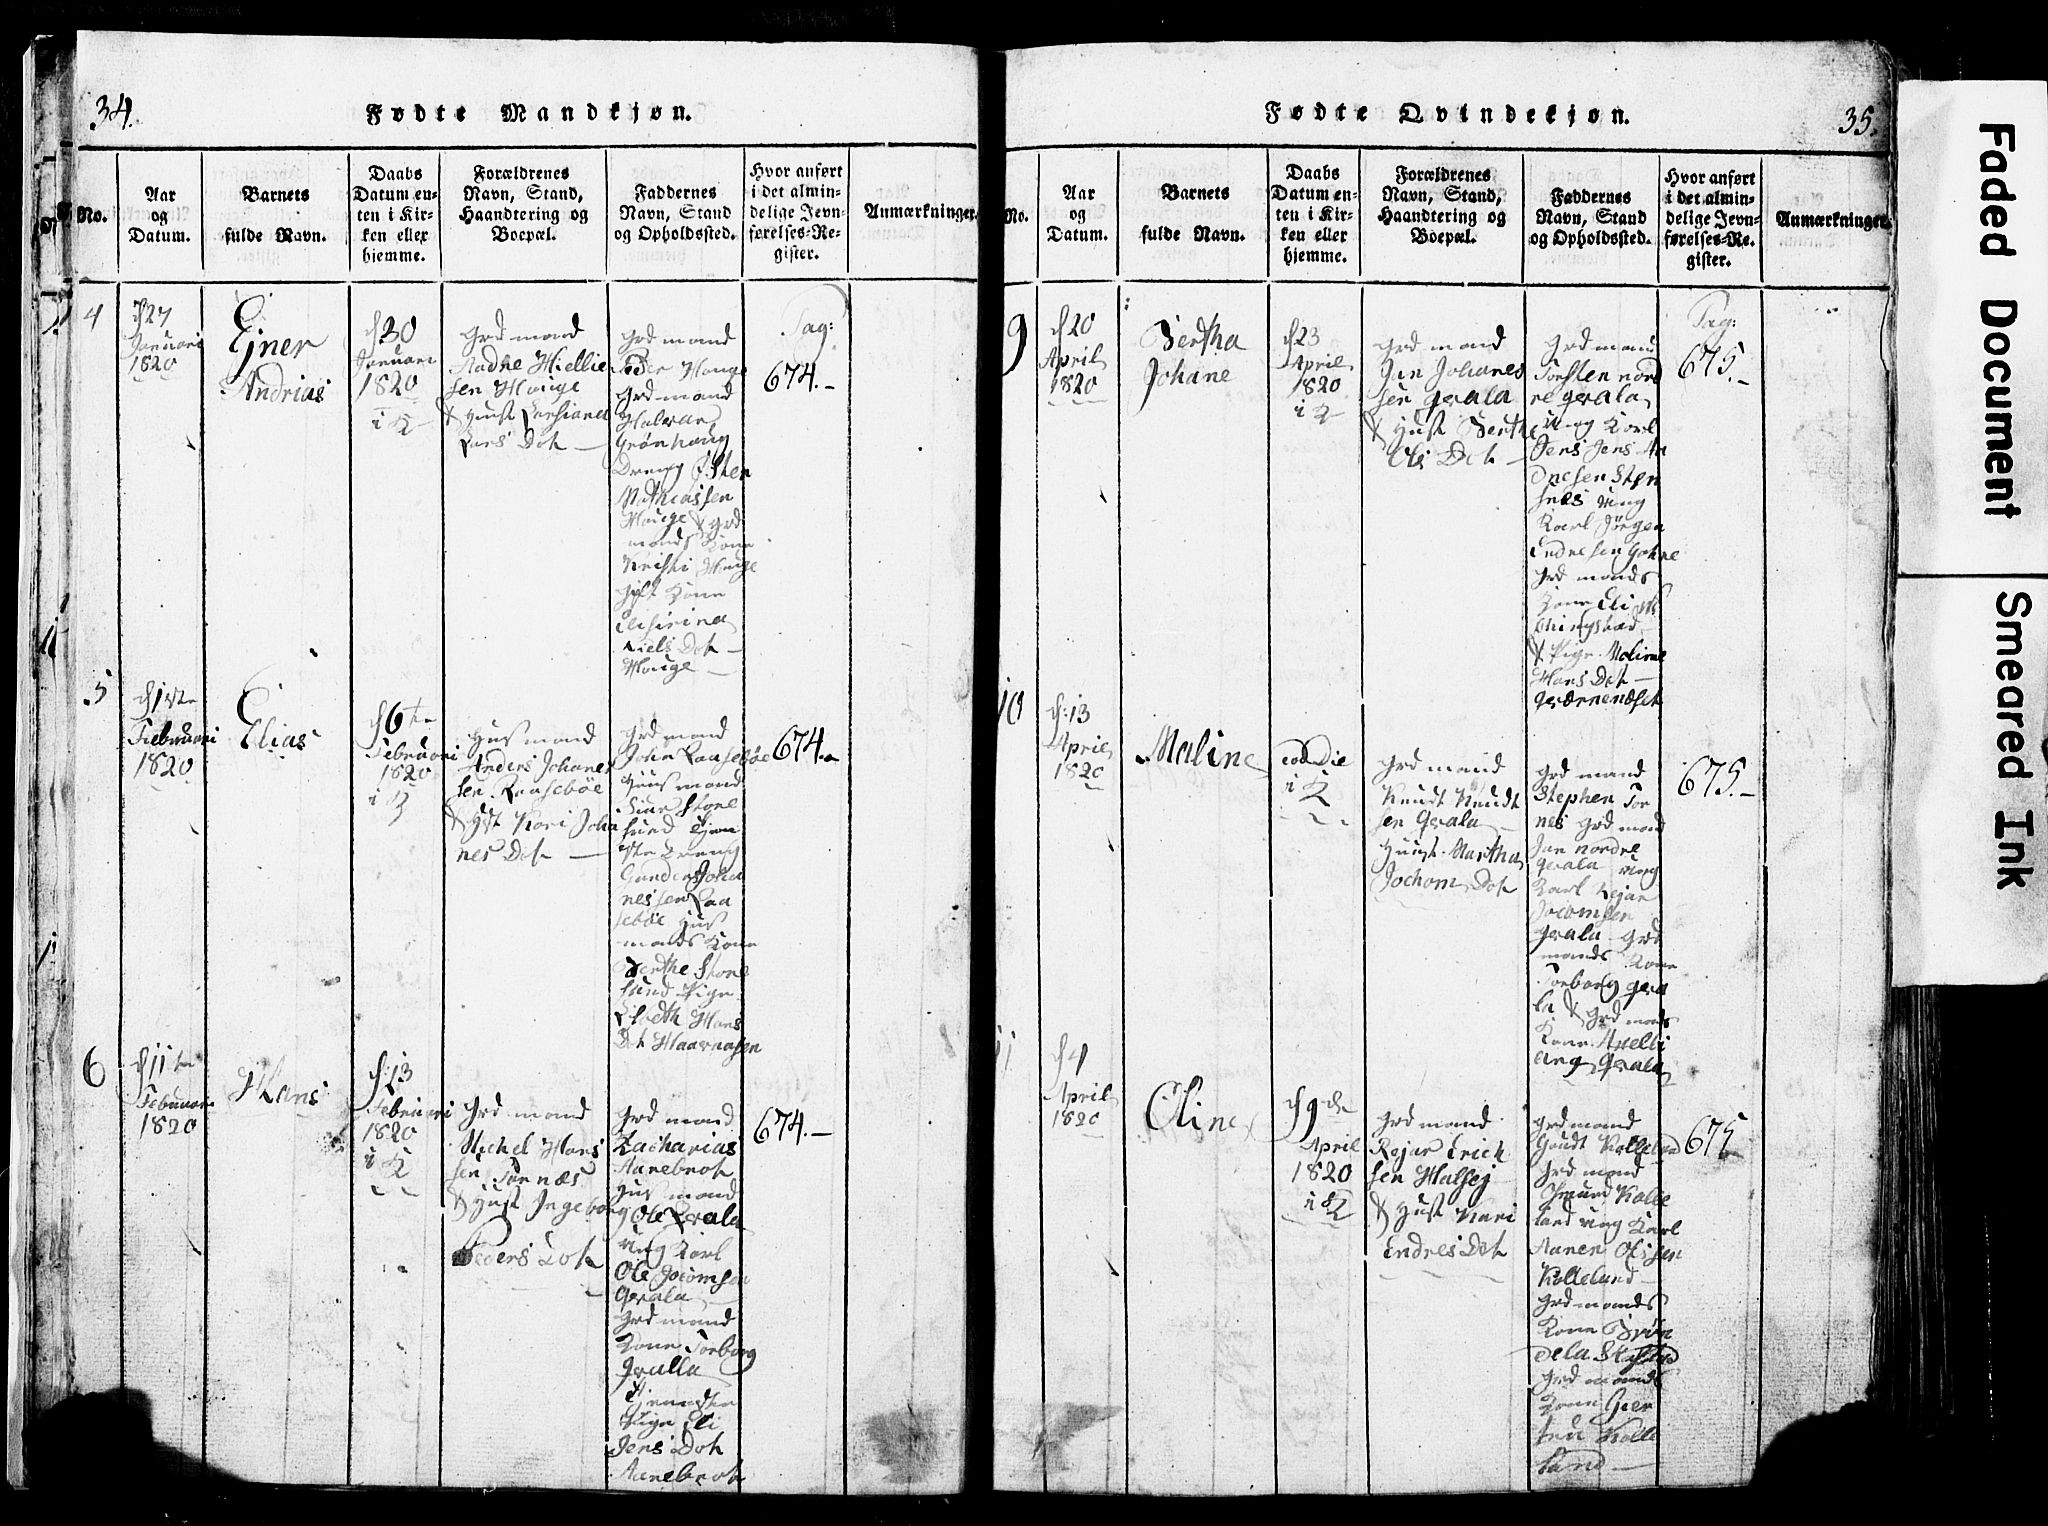 34.
Fødte Mandkjøn.
No.
Aar
og
Datum.
Barnets
fulde Navn.
Daabs
Datum en-
ten i Kir-
ken eller
hjemme.
Forældrenes
Navn, Stand,
Haandtering og
Boepæl.
Faddernes
Navn, Stand
og Opholdssted.
Hvor anført
i det almin-
delige Jevn-
førelses-Re-
gister.
Anmærkninger.
4
d 27
Januari
1820
Ejner
Andrias
d 30
Januari
1820
i K
Grd mand
Aadne Hiellie
sen Houge
& Hust
Lars Dot
Grd mand
Peder Houge
Grd mand
Halvar
Grønhaug
Dreng Østen
Mathiassen
Houge & grd
mands Kone
Kristi Houge
gift Kone
Elisirina
Niels Dot
Houge
Pag:
674.
5
d 1ste
Februari
1820
Elias
d 6te
Februari
1820
i K
Huusmand
Anders Johanes
sen Raasebøe
& Hst Kari Joha
nes Dot
Grd mand
John Raasebøe
Huusmand
Siur Store
sund Tjene
ste Dreng
Gunder Joha
nessen Raa
sebøe Hus
mands Kone
Berthe Store
sund Pige
Elisbeth Hans
Dot
674.
6
d 11te
Februari
1820
Hans
d: 13
Februari
1820
i K
Grd mand
Michel Hans
sen Tornæs
& Hust Ingeborg
Peders Dot
Grd mand
Zacharias
Aarebrot
Husmand
Ole Qvala
Ung Karl
Ole Jocomsen
Qvala
Grd mand
Kone Torborg
Qvalla
Tjeneste
Pige Eli
Jens Dot
Aarebrot
674.
Fødte Qvindekjøn.
35.
No.
Aar
og
Datum.
Barnets
fulde Navn.
Daabs
Datum en-
ten i Kir-
ken eller
hjemme.
Forældrenes
Navn, Stand,
Haandtering og
Boepæl.
Faddernes
Navn, Stand
og Opholdssted.
Hvor anført
i det almin-
delige Jevn-
førelses-Re-
gister.
Anmærkninger.
9
d 20
April
1820
Bertha
Johane
d 23
April
1820
i K
Grd mand
Jan Johanes
sen Qvala
& Hust Berthe
Ols Dot
Grd mand
Torsten nord
re Qvala
Ung Karl
Jens Jens An
dresen Sten
snes Ung
Karl Jørgen
Endresen
Grd mands
Kone
& Pige Maline
Hans Dot
Pag:
675.
10
d: 13
April
1820
Maline
eodem die
i K
Grd mand
Knudt Knudt
sen Qvala
Huust Martha
Jochom Dot
Grd mand
Stephen Tor
nes Grd mand
Jan Nordre
Qvala Ung
Karl Rejar
Jocomsen
Qvala Grd
mands Kone
Torborg Qva
la & Grd mands
Kone
Qvala
675.
11
d 4
April
1820
Oline
d 9de
April
1820
i K
Grd mand
Rejar Erich
sen Halsej
& Hust Kari
Endres Dot
Grd mand
Kolleland
Grd mand
Kolle
land Ung Karl
Aanen Olssen
Kolleland
Grd mands
Kone
Grd mands
Kone
Kolle
land
675
Faded Document Smeared Ink